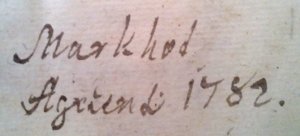 Markhod
Agriend 1782.